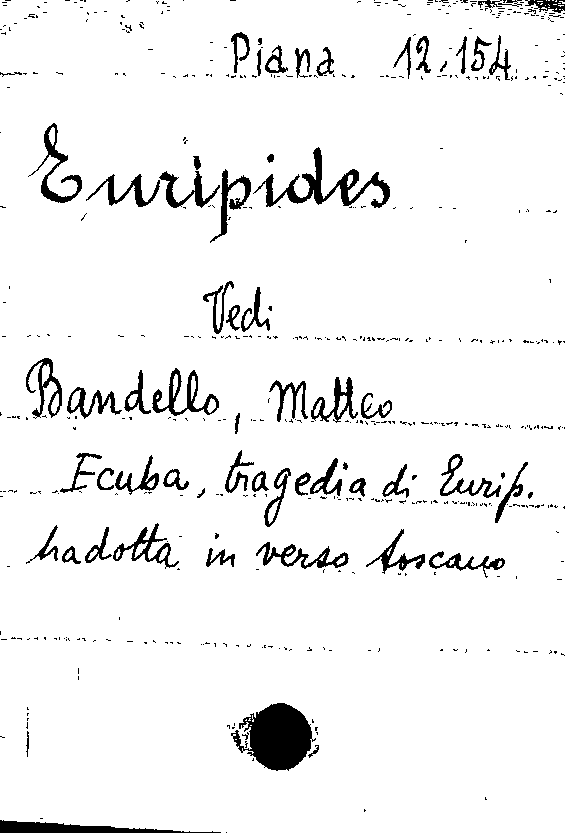 Piana 12.154
Euripides
Vedi
Bandello, Matteo
Ecuba, tragedia di Eurip.
tradotta in verso toscano